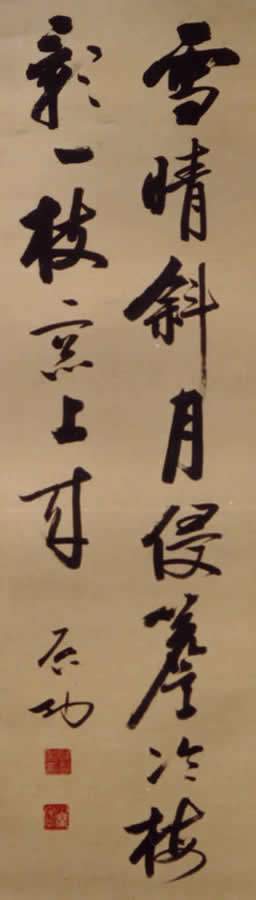 雪晴斜月侵簷冷梅
影一枝窓上来
启功